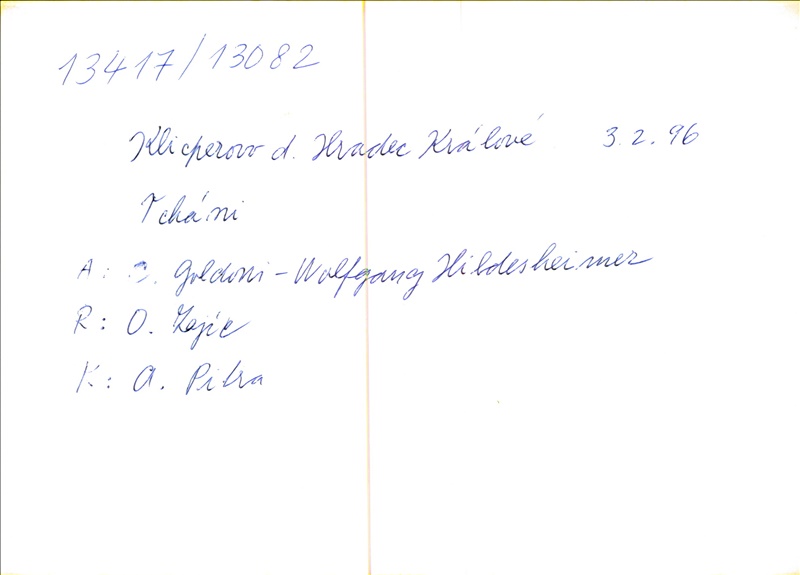 13417/13082
Klicperovo d. Hradec Králové 3.2.96
Tcháni
A: Goldoni - Wolfgang Hildesheimer
R: O. Zajíc
K: A. Pitra